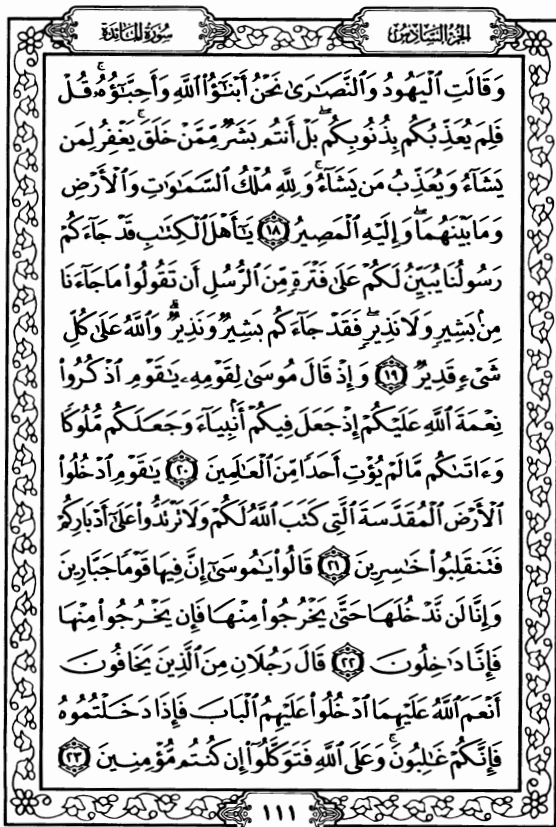 سُورَةُ المَائِدَة
الجُزْءُ السَّادِسُ
وَقَالَتِ ٱلْيَهُودُ وَٱلنَّصَٰرَىٰ نَحْنُ أَبْنَٰٓؤُا۟ ٱللَّهِ وَأَحِبَّٰٓؤُهُۥ ۚ قُلْ
فَلِمَ يُعَذِّبُكُم بِذُنُوبِكُم ۖ بَلْ أَنتُم بَشَرٌ مِّمَّنْ خَلَقَ ۚ يَغْفِرُ لِمَن
يَشَآءُ وَيُعَذِّبُ مَن يَشَآءُ ۚ وَلِلَّهِ مُلْكُ ٱلسَّمَٰوَٰتِ وَٱلْأَرْضِ
وَمَا بَيْنَهُمَا ۖ وَإِلَيْهِ ٱلْمَصِيرُ ١٨ يَٰٓأَهْلَ ٱلْكِتَٰبِ قَدْ جَآءَكُمْ
رَسُولُنَا يُبَيِّنُ لَكُمْ عَلَىٰ فَتْرَةٍ مِّنَ ٱلرُّسُلِ أَن تَقُولُوا۟ مَا جَآءَنَا
مِنۢ بَشِيرٍ وَلَا نَذِيرٍ ۖ فَقَدْ جَآءَكُم بَشِيرٌ وَنَذِيرٌ ۗ وَٱللَّهُ عَلَىٰ كُلِّ
شَىْءٍ قَدِيرٌ ١٩ وَإِذْ قَالَ مُوسَىٰ لِقَوْمِهِۦ يَٰقَوْمِ ٱذْكُرُوا۟
نِعْمَةَ ٱللَّهِ عَلَيْكُمْ إِذْ جَعَلَ فِيكُمْ أَنۢبِيَآءَ وَجَعَلَكُم مُّلُوكًا
وَءَاتَىٰكُم مَّا لَمْ يُؤْتِ أَحَدًا مِّنَ ٱلْعَٰلَمِينَ ٢٠ يَٰقَوْمِ ٱدْخُلُوا۟
ٱلْأَرْضَ ٱلْمُقَدَّسَةَ ٱلَّتِى كَتَبَ ٱللَّهُ لَكُمْ وَلَا تَرْتَدُّوا۟ عَلَىٰٓ أَدْبَارِكُمْ
فَتَنقَلِبُوا۟ خَٰسِرِينَ ٢١ قَالُوا۟ يَٰمُوسَىٰٓ إِنَّ فِيهَا قَوْمًا جَبَّارِينَ
وَإِنَّا لَن نَّدْخُلَهَا حَتَّىٰ يَخْرُجُوا۟ مِنْهَا فَإِن يَخْرُجُوا۟ مِنْهَا
فَإِنَّا دَٰخِلُونَ ٢٢ قَالَ رَجُلَانِ مِنَ ٱلَّذِينَ يَخَافُونَ
أَنْعَمَ ٱللَّهُ عَلَيْهِمَا ٱدْخُلُوا۟ عَلَيْهِمُ ٱلْبَابَ فَإِذَا دَخَلْتُمُوهُ
فَإِنَّكُمْ غَٰلِبُونَ ۚ وَعَلَى ٱللَّهِ فَتَوَكَّلُوٓا۟ إِن كُنتُم مُّؤْمِنِينَ ٢٣
١١١